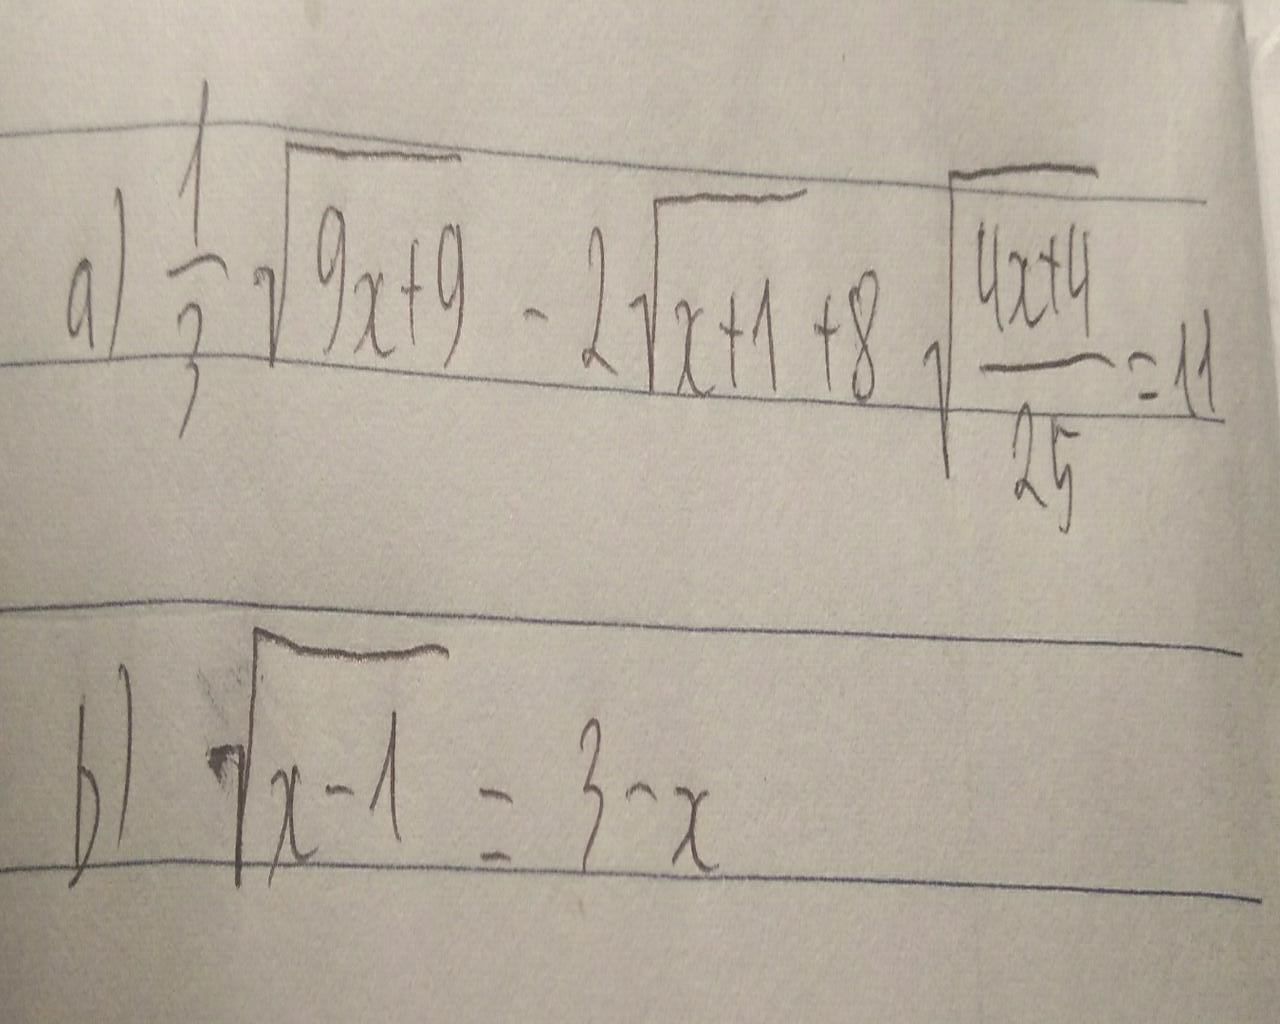 a) 1/3 √(9x+9) - 2√(x+1) + 8 √((4x+4)/25) = 11
b) √(x-1) = 3-x